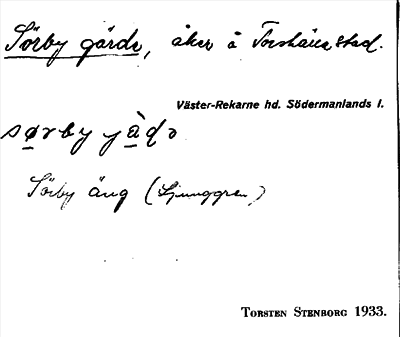 Sörby gärde, åker å Torshälla stad.
Väster-Rekarne hd. Södermanlands l.
sørby yàdə
Sörby äng (Ljunggren)
Torsten Stenborg 1933.